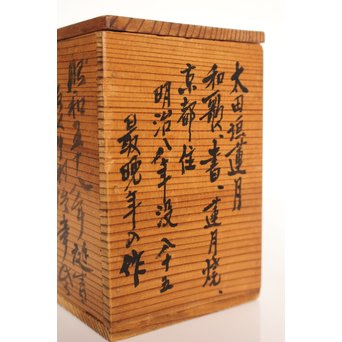 太田垣蓮月
和歌、書、蓮月焼、
京都住
明治八年没 八十五
最晩年の作
昭和五十八年